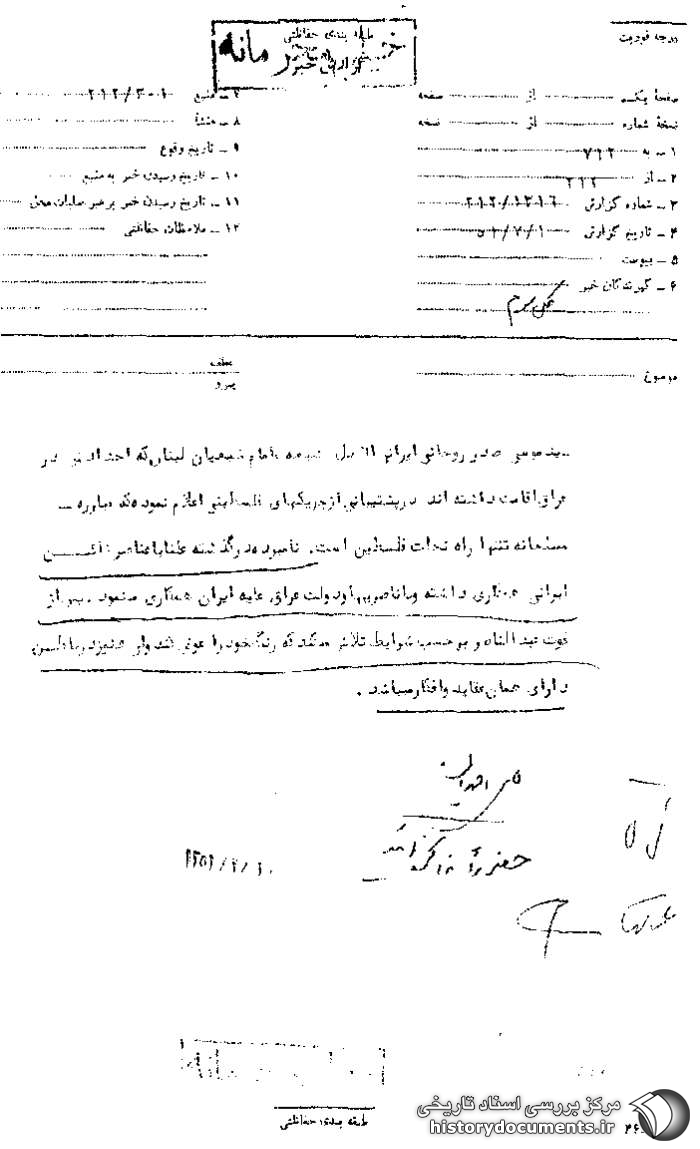 درجه فوریت
طبقه بندی حفاظتی
خیلی محرمانه
گزارش خبر
صفحهٔ یک از صفحه
نسخهٔ شماره از نسخه
۱ ــ به ۷۲۲
۲ ــ از ۲۱۲
۳ ــ شماره گزارش
۴ ــ تاریخ گزارش ۵۱/۷/۱
۵ ــ پیوست
۶ ــ گیرندگان خبر
۷ ــ منبع ۲۱۲/۳۰۱
۸ ــ منشأ
۹ ــ تاریخ وقوع
۱۰ ــ تاریخ رسیدن خبر به منبع
۱۱ ــ تاریخ رسیدن خبر برهبر عملیات محل
۱۲ ــ ملاحظات حفاظتی
موضوع
عطف
پیرو
سیدموسی صدر روحانی ایرانی الاصل شیعه و امام شیعیان لبنان که اجدادش در
عراق اقامت داشته اند در پشتیبانی از چریکهای فلسطینی اعلام نموده که مبارزه ــ
مسلحانه تنها راه نجات فلسطین است. نامبرده در گذشته علنا با عناصر خائن
ایرانی همکاری داشته و با ناصریها و دولت عراق علیه ایران همکاری مینمود. پس از
فوت عبدالناصر و برحسب شرایط تلاش میکند که رنگ خود را عوض کند ولی هنوز در باطن
دارای همان عقاید و افکار میباشد.
طبقه بندی حفاظتی
مرکز بررسی اسناد تاریخی
historydocuments.ir